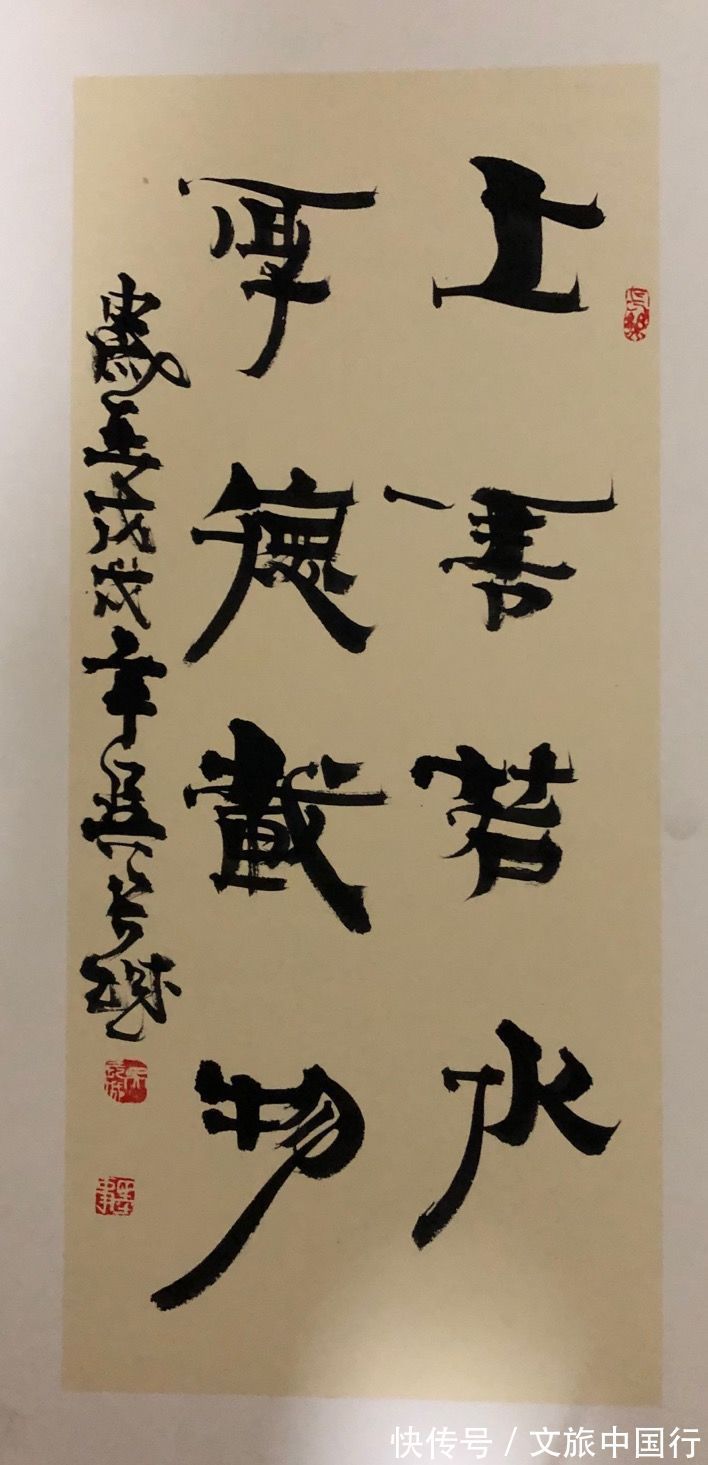 上善若水
厚德載物
戊戌年吴长城
快传号 / 文旅中国行